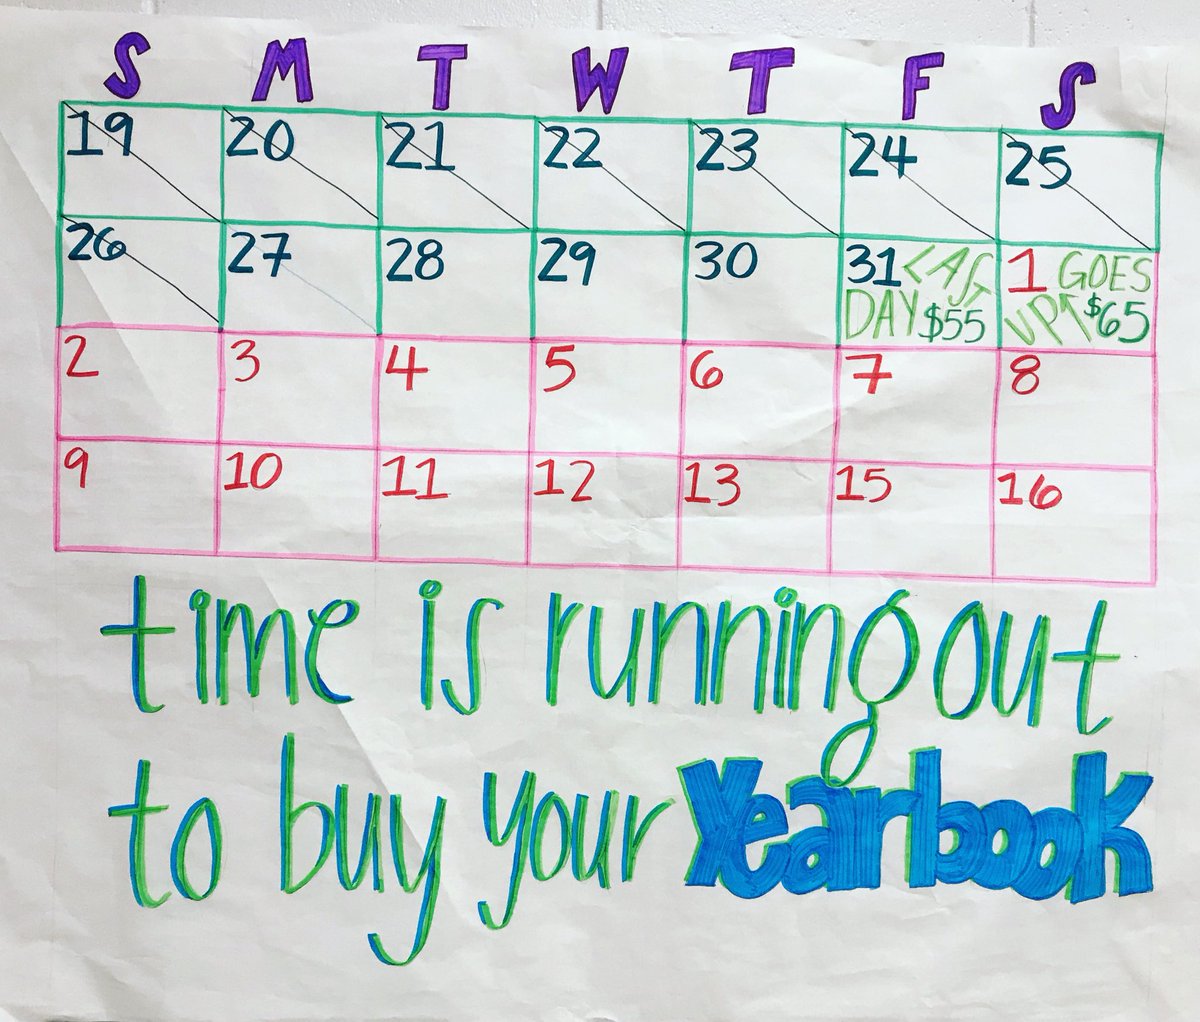 S M T W T F S
19 20 21 22 23 24 25
26 27 28 29 30 31 LAST 1 GOES
DAY $55 UP↑ $65
2 3 4 5 6 7 8
9 10 11 12 13 15 16
time is running out
to buy your Yearbook